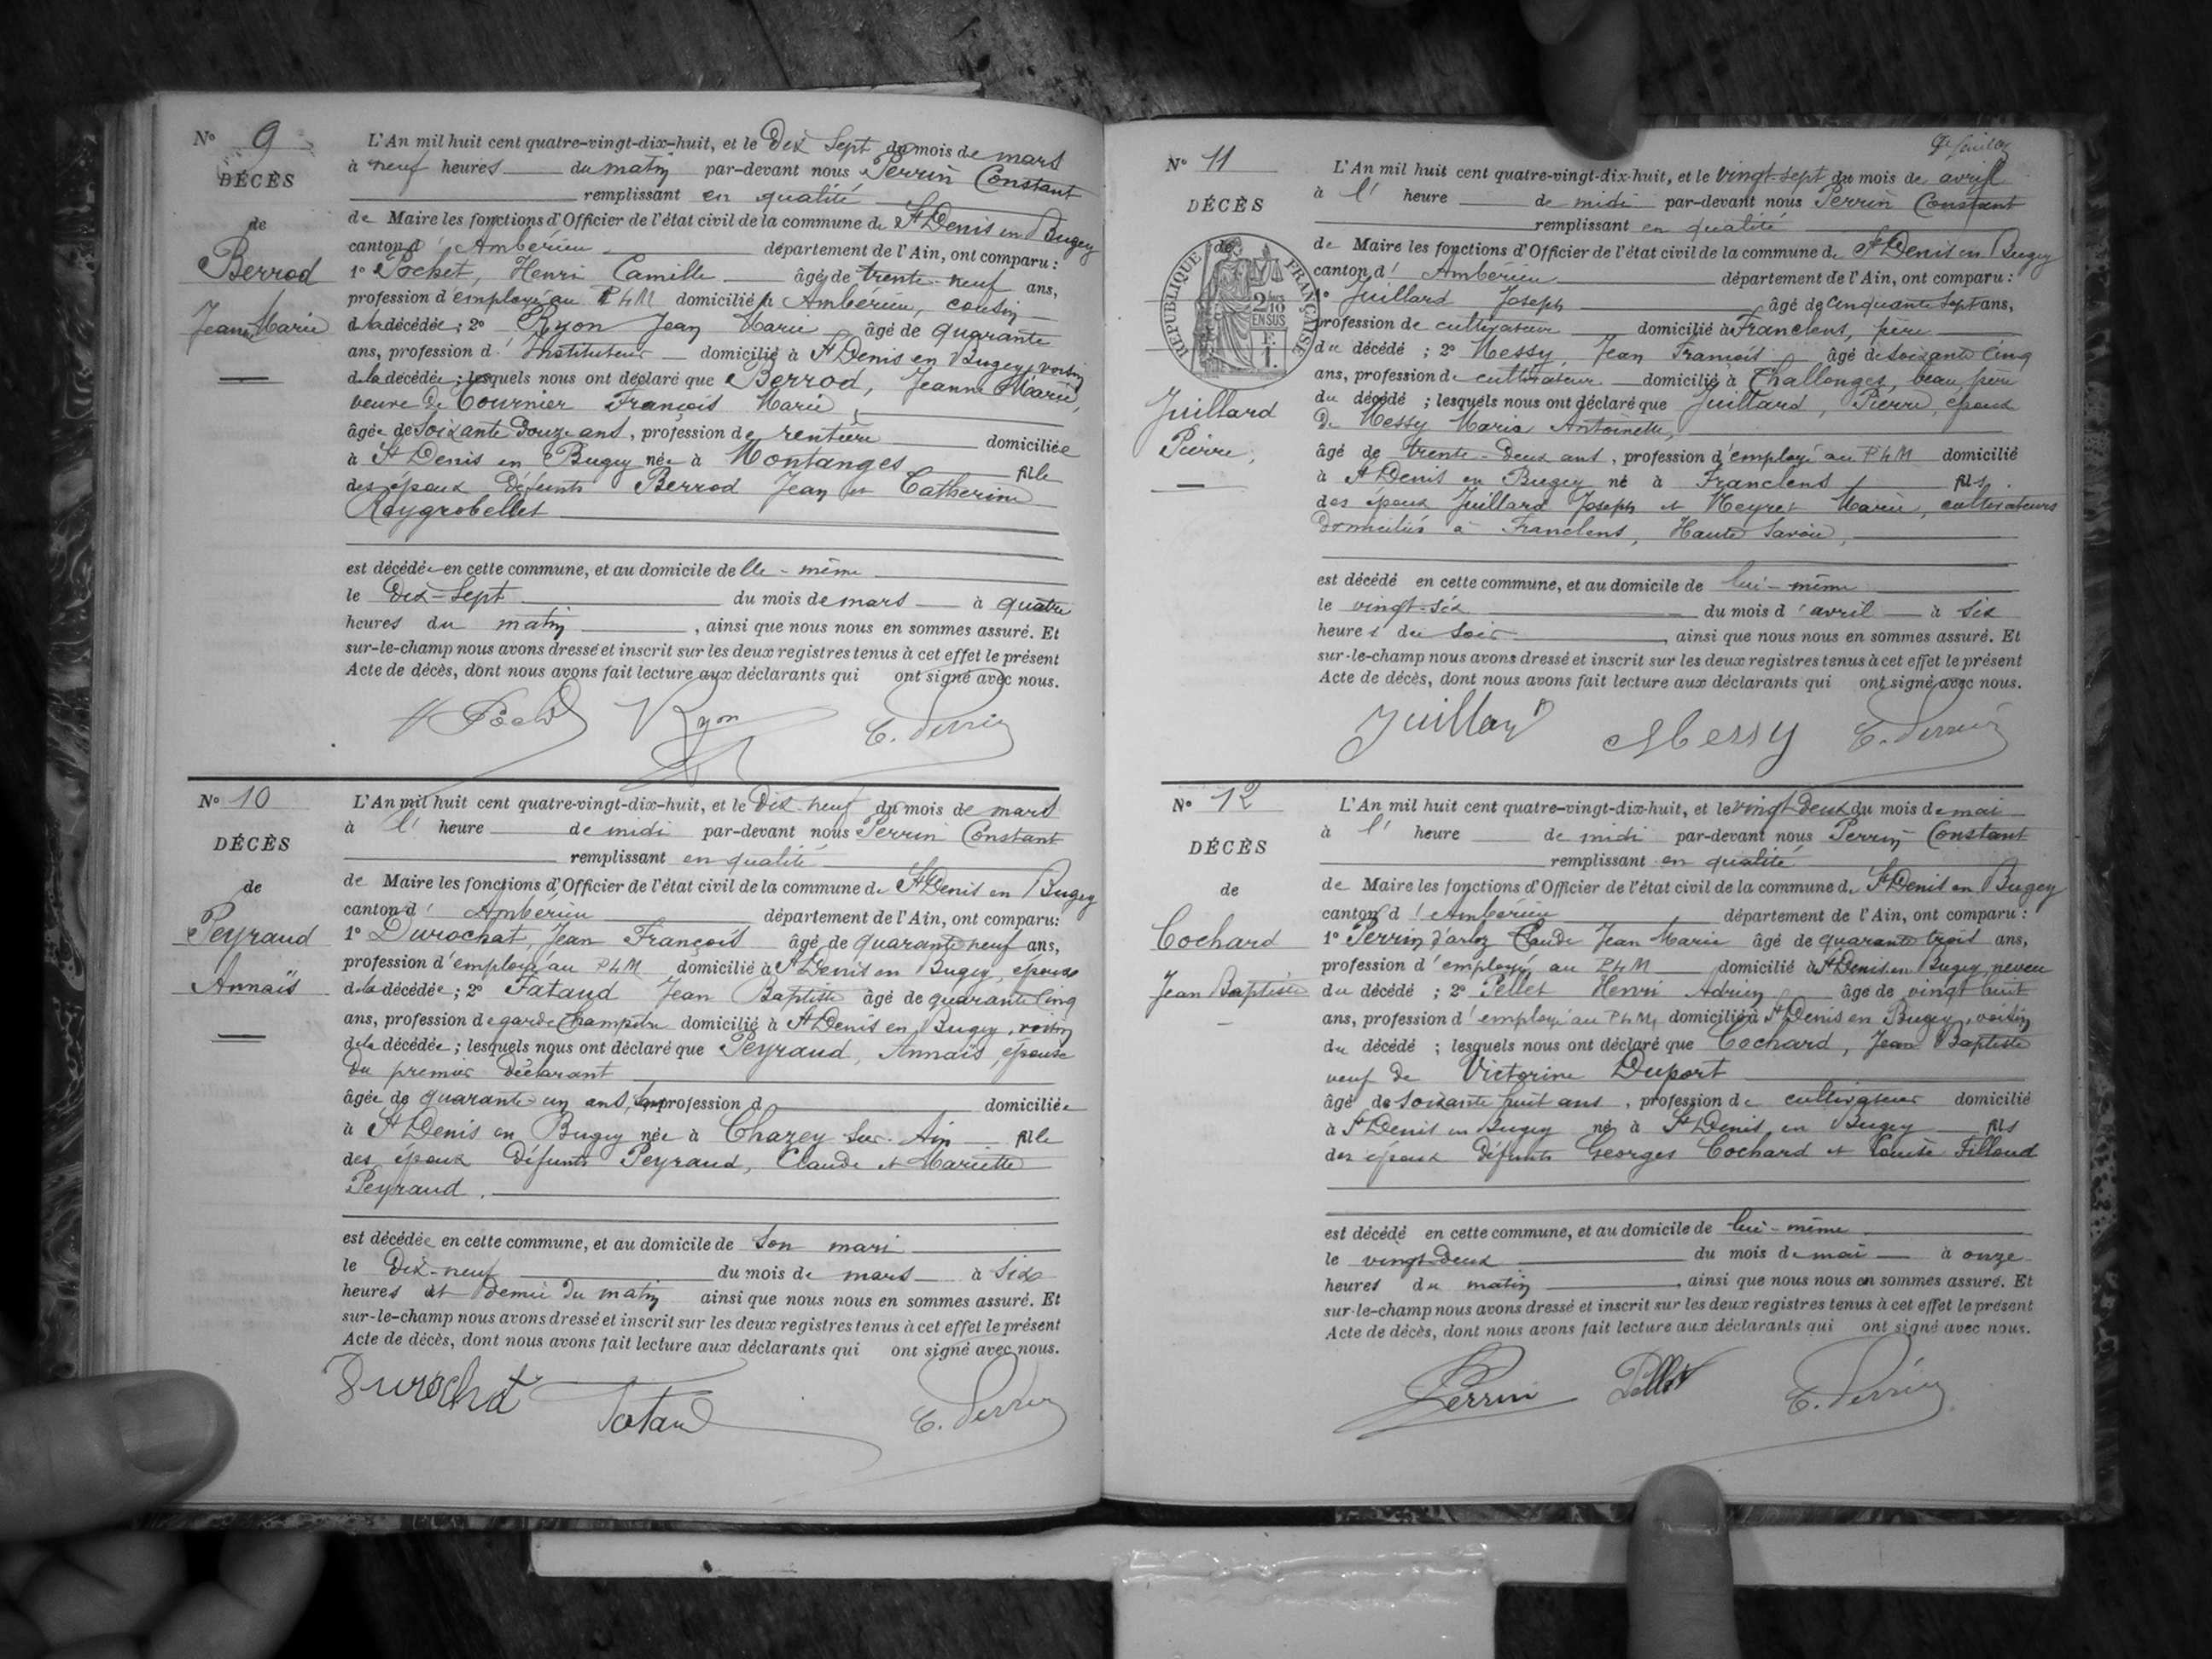 N° 9
DÉCÈS
de
Berrod
Jeanne Marie
L'An mil huit cent quatre-vingt-dix-huit, et le Dix Sept du mois de mars
à neuf heures du matin par-devant nous Perrin Constant
remplissant en qualité
de Maire les fonctions d'Officier de l'état civil de la commune de St Denis en Bugey
canton d'Ambérieu département de l'Ain, ont comparu :
1° Pochet, Henri Camille âgé de trente-neuf ans,
profession d'employé au PLM domicilié à Ambérieu, cousin
de la décédée ; 2° Ryon Jean Marie âgé de quarante
ans, profession d'Instituteur domicilié à St Denis en Bugey, voisin
de la décédée ; lesquels nous ont déclaré que Berrod, Jeanne Marie,
veuve de Tournier François Marie,
âgée de soixante Douze ans, profession de rentière domiciliée
à St Denis en Bugey née à Montanges fille
des époux défunts Berrod Jean et Catherine
Raygrobellet
est décédée en cette commune, et au domicile d'elle-même
le Dix-Sept du mois de mars à quatre
heures du matin, ainsi que nous nous en sommes assuré. Et
sur-le-champ nous avons dressé et inscrit sur les deux registres tenus à cet effet le présent
Acte de décès, dont nous avons fait lecture aux déclarants qui ont signé avec nous.
Ryon C. Perrin
N° 10
DÉCÈS
de
Peyraud
Annaïs
L'An mil huit cent quatre-vingt-dix-huit, et le Dix-neuf du mois de mars
à l' heure de midi par-devant nous Perrin Constant
remplissant en qualité
de Maire les fonctions d'Officier de l'état civil de la commune de St Denis en Bugey
canton d'Ambérieu département de l'Ain, ont comparu :
1° Durochat, Jean François âgé de quarante neuf ans,
profession d'employé au PLM domicilié à St Denis en Bugey, époux
de la décédée ; 2° Tataud Jean Baptiste âgé de quarante cinq
ans, profession de garde Champêtre domicilié à St Denis en Bugey, voisin
de la décédée ; lesquels nous ont déclaré que Peyraud, Annaïs, épouse
du premier déclarant
âgée de quarante un ans, sans profession d domiciliée
à St Denis en Bugey née à Chazey sur Ain fille
des époux défunts Peyraud, Claude et Mariette
Peyraud.
est décédée en cette commune, et au domicile de son mari
le Dix-neuf du mois de mars à six
heures et demie du matin ainsi que nous nous en sommes assuré. Et
sur-le-champ nous avons dressé et inscrit sur les deux registres tenus à cet effet le présent
Acte de décès, dont nous avons fait lecture aux déclarants qui ont signé avec nous.
Durochat Tataud C. Perrin
N° 11
DÉCÈS
de
RÉPUBLIQUE FRANÇAISE
2/10 EN SUS
Juillard
Pierre,
L'An mil huit cent quatre-vingt-dix-huit, et le vingt-sept du mois de avril
à l' heure de midi par-devant nous Perrin Constant
remplissant en qualité
de Maire les fonctions d'Officier de l'état civil de la commune de St Denis en Bugey
canton d'Ambérieu département de l'Ain, ont comparu :
1° Juillard Joseph âgé de cinquante sept ans,
profession de cultivateur domicilié à Franclens, père
du décédé ; 2° Messy, Jean François âgé de soixante cinq
ans, profession de cultivateur domicilié à Challonges, beau père
du décédé ; lesquels nous ont déclaré que Juillard, Pierre, époux
de Messy Maria Antoinette,
âgé de trente-deux ans, profession d'employé au PLM domicilié
à St Denis en Bugey né à Franclens fils
des époux Juillard Joseph et Neyret Marie, cultivateurs
domiciliés à Franclens, Haute Savoie,
est décédé en cette commune, et au domicile de lui-même
le vingt-six du mois d'avril à six
heures du soir, ainsi que nous nous en sommes assuré. Et
sur-le-champ nous avons dressé et inscrit sur les deux registres tenus à cet effet le présent
Acte de décès, dont nous avons fait lecture aux déclarants qui ont signé avec nous.
Juillard Messy C. Perrin
N° 12
DÉCÈS
de
Cochard
Jean Baptiste
L'An mil huit cent quatre-vingt-dix-huit, et le vingt deux du mois de mai
à l' heure de midi par-devant nous Perrin Constant
remplissant en qualité
de Maire les fonctions d'Officier de l'état civil de la commune de St Denis en Bugey
canton d'Ambérieu département de l'Ain, ont comparu :
1° Perrin d'arloz Claude Jean Marie âgé de quarante trois ans,
profession d'employé au PLM domicilié à St Denis en Bugey, neveu
du décédé ; 2° Pellet Henri Adrien âgé de vingt huit
ans, profession d'employé au PLM, domicilié à St Denis en Bugey, voisin
du décédé ; lesquels nous ont déclaré que Cochard, Jean Baptiste
veuf de Victorine Duport
âgé de soixante huit ans, profession de cultivateur domicilié
à St Denis en Bugey né à St Denis en Bugey fils
des époux défunts Georges Cochard et Louise Filloud
est décédé en cette commune, et au domicile de lui-même
le vingt deux du mois de mai à onze
heures du matin, ainsi que nous nous en sommes assuré. Et
sur-le-champ nous avons dressé et inscrit sur les deux registres tenus à cet effet le présent
Acte de décès, dont nous avons fait lecture aux déclarants qui ont signé avec nous.
Perrin Pellet C. Perrin